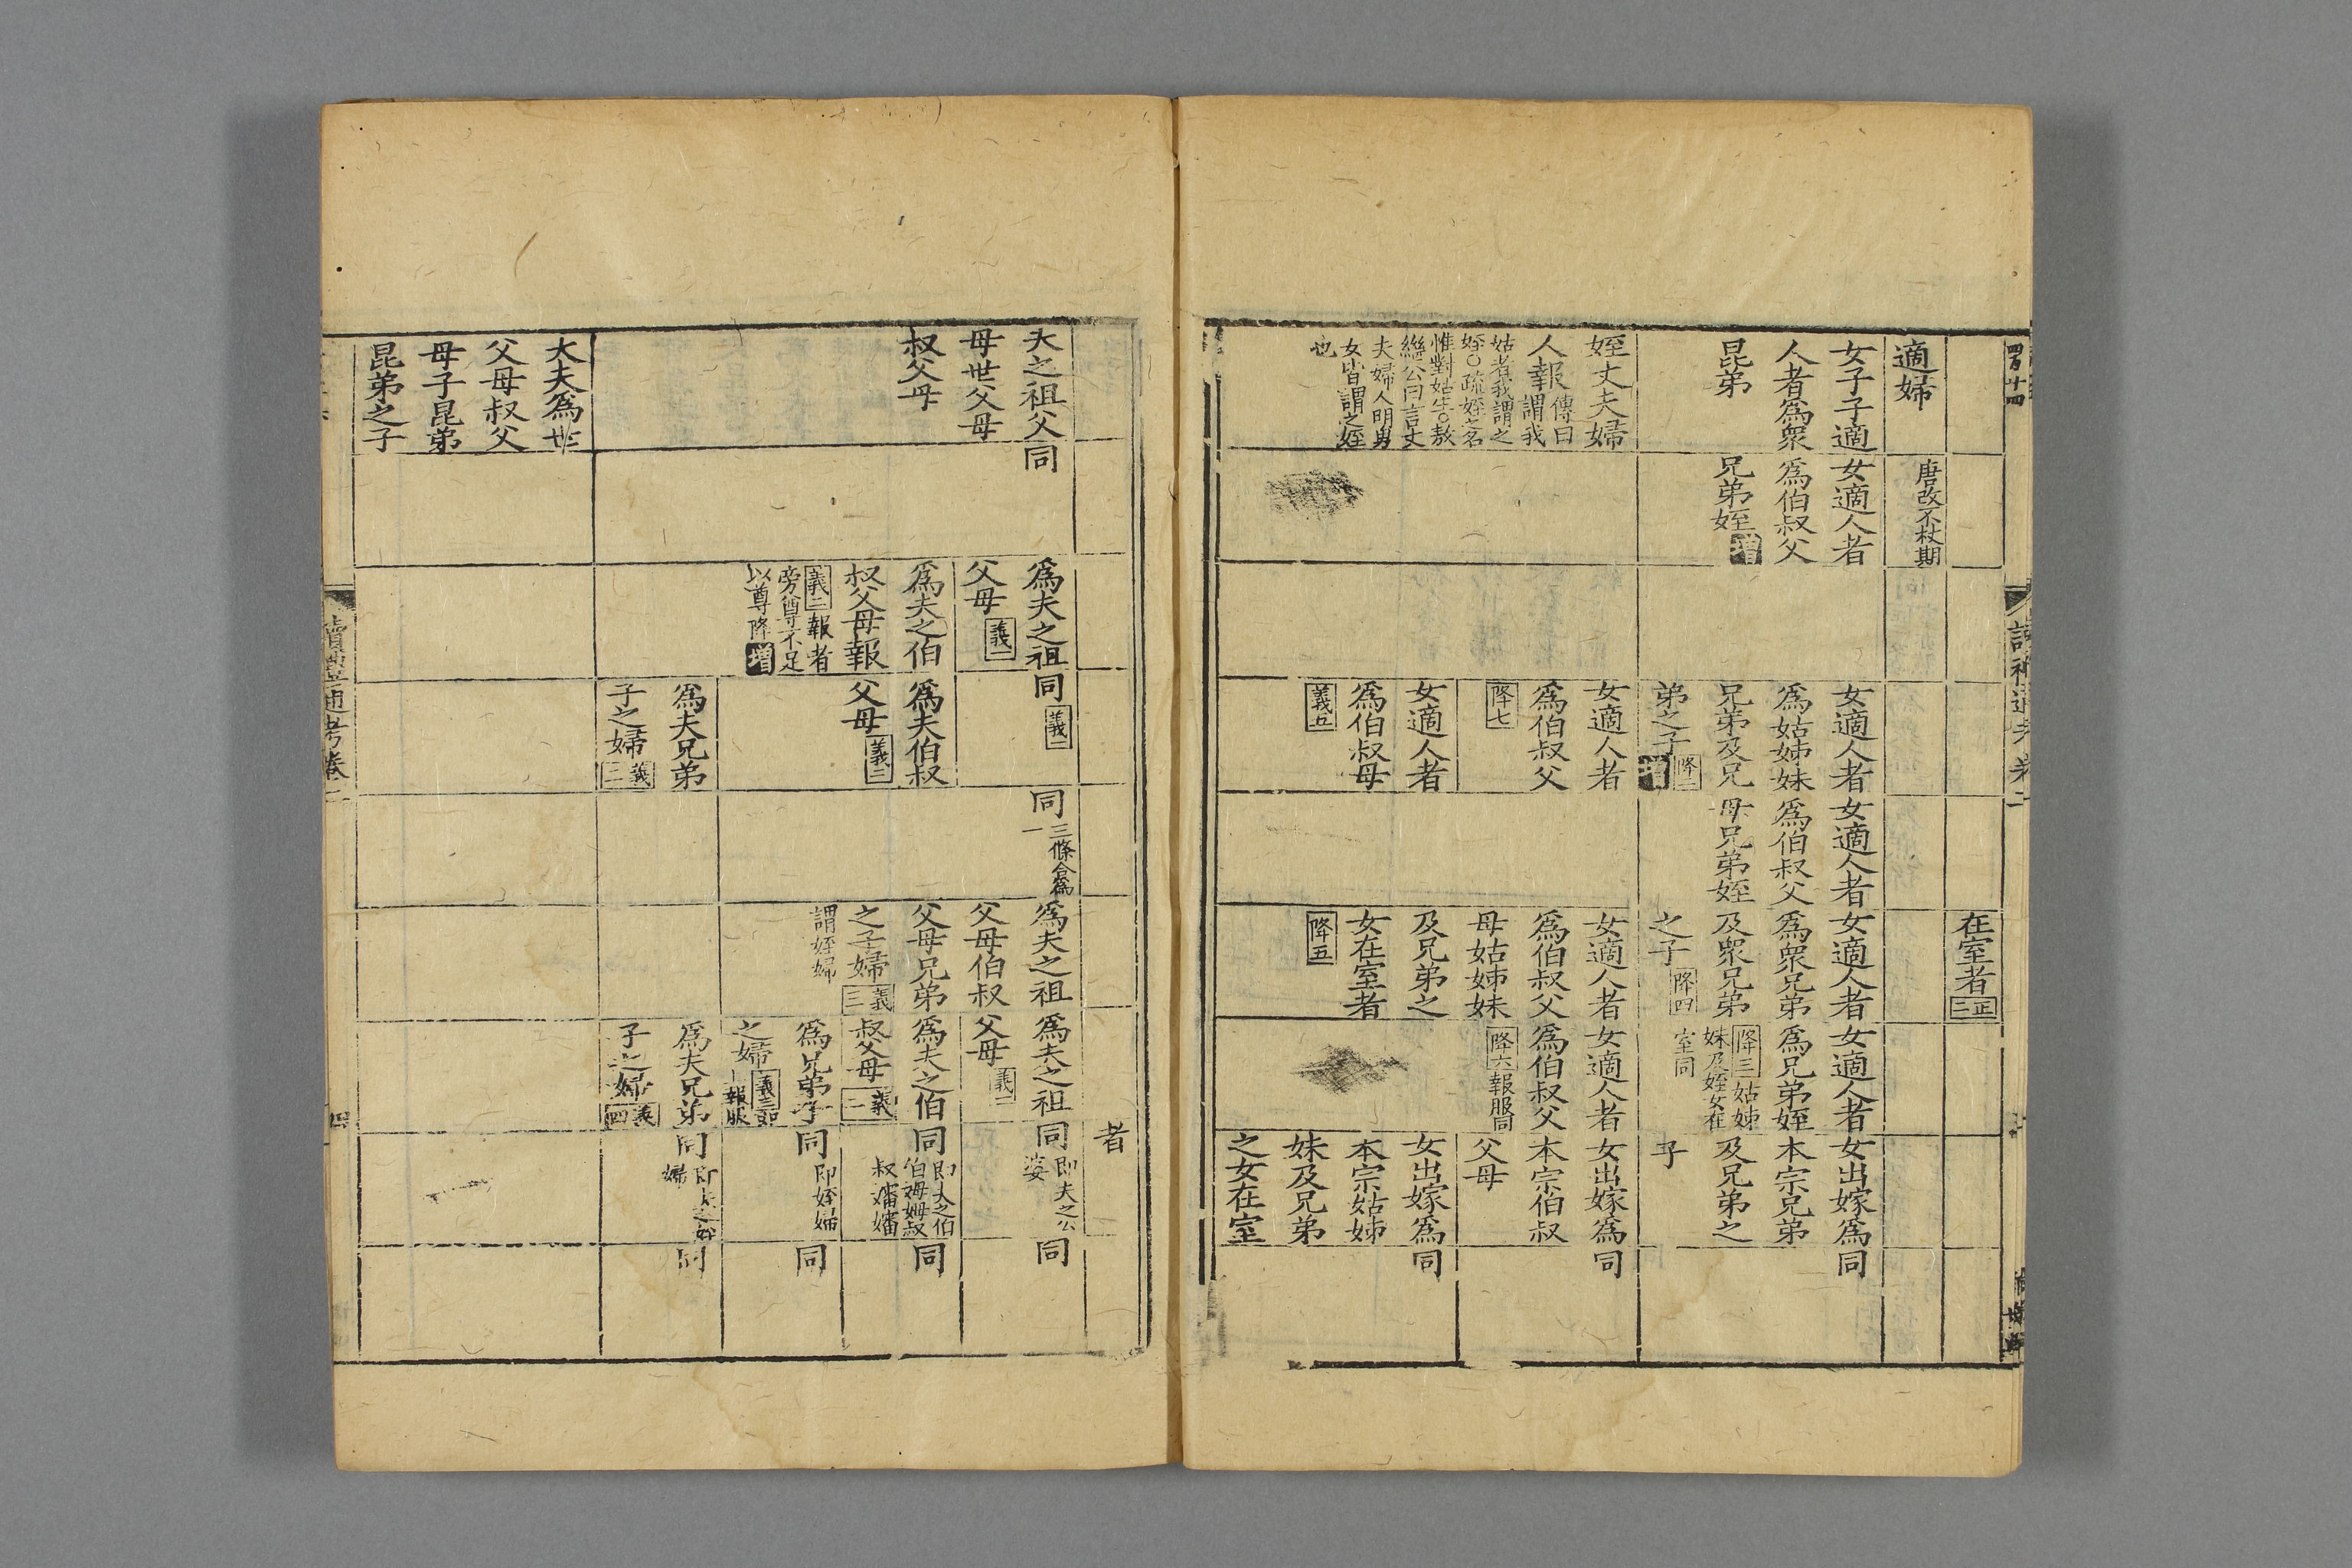 讀禮通考卷二
在室者
正二
適婦
唐改不杖期
女子子適
人者爲衆
昆弟
女適人者
爲伯叔父
兄弟姪
增
女適人者
爲姑姊妹
兄弟及兄
弟之子
降二
增
女適人者
爲伯叔父
母兄弟姪
女適人者
爲衆兄弟
及衆兄弟
之子
降四
女適人者
爲兄弟姪
降三姑姊
妹及姪女在
室同
女出嫁爲
本宗兄弟
及兄弟之
子
同
姪丈夫婦
人報
傳曰
謂我
姑者我謂之
姪〇疏姪之名
惟對姑生〇敖
繼公曰言丈
夫婦人明男
女皆謂之姪
也
女適人者
爲伯叔父
降七
女適人者
爲伯叔父
母姑姊妹
及兄弟之
女在室者
降五
女適人者
爲伯叔父
降六報服同
女出嫁爲
本宗伯叔
父母
同
女適人者
爲伯叔母
義五
女出嫁爲
本宗姑姊
妹及兄弟
之女在室
同
者
夫之祖父
母世父母
叔父母
同
爲夫之祖
父母
義一
同
義一
同
三條合爲
一
爲夫之祖
父母伯叔
父母兄弟
之子婦
義三
謂姪婦
爲夫之祖
父母
義一
同
即夫之公
婆
同
爲夫之伯
叔父母報
義二報者
旁尊不足
以尊降
增
爲夫伯叔
父母
義二
爲夫之伯
叔父母
義二
同
即夫之伯
伯姆姆叔
叔嬸嬸
同
爲兄弟子
之婦
報服
同
即姪婦
同
爲夫兄弟
子之婦
義三
爲夫兄弟
子之婦
義四
同
即夫之姪
婦
同
大夫爲世
父母叔父
母子昆弟
昆弟之子
讀禮通考卷二
四